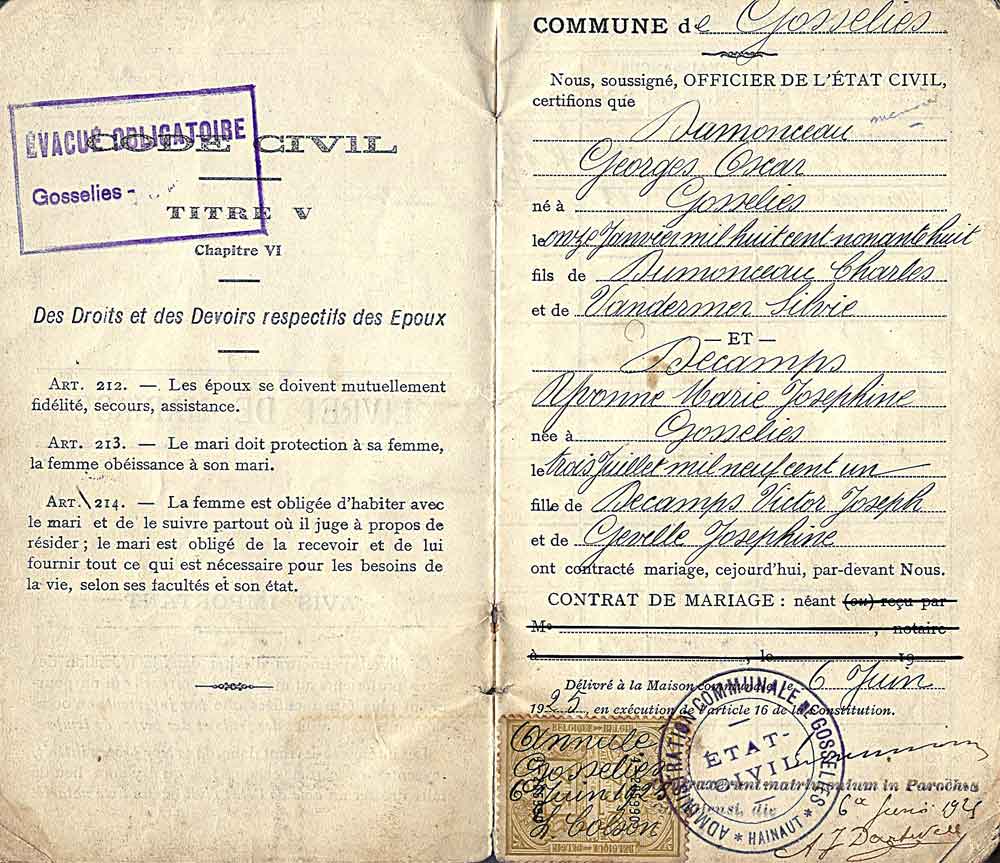 ÉVACUÉ OBLIGATOIRE
Gosselies -
CODE CIVIL
TITRE V
Chapitre VI
Des Droits et des Devoirs respectifs des Epoux
ART. 212. — Les époux se doivent mutuellement
fidélité, secours, assistance.
ART. 213. — Le mari doit protection à sa femme,
la femme obéissance à son mari.
ART. 214. — La femme est obligée d'habiter avec
le mari et de le suivre partout où il juge à propos de
résider ; le mari est obligé de la recevoir et de lui
fournir tout ce qui est nécessaire pour les besoins de
la vie, selon ses facultés et son état.
COMMUNE de Gosselies
Nous, soussigné, OFFICIER DE L'ÉTAT CIVIL,
certifions que
Dumonceau
Georges Oscar
né à Gosselies
le onze Janvier mil huit cent nonante huit
fils de Dumonceau Charles
et de Vandermer Silvie
— ET —
Decamps
Yvonne Marie Josephine
née à Gosselies
le trois Juillet mil neuf cent un
fille de Decamps Victor Joseph
et de Gevelle Josephine
ont contracté mariage, cejourd'hui, par-devant Nous.
CONTRAT DE MARIAGE : néant (ou) reçu par
Me , notaire
à , le 19
Délivré à la Maison communale, le 6 Juin
1925, en exécution de l'article 16 de la Constitution.
BELGIQUE - BELGIË
Annulé
Gosselies
6 Juin 1925
L Colson
BELGIQUE - BELGIË
ADMINISTRATION COMMUNALE DE GOSSELIES
ÉTAT-
CIVIL
* HAINAUT *
matrimonium in Parochia
die 6a Junii 1925